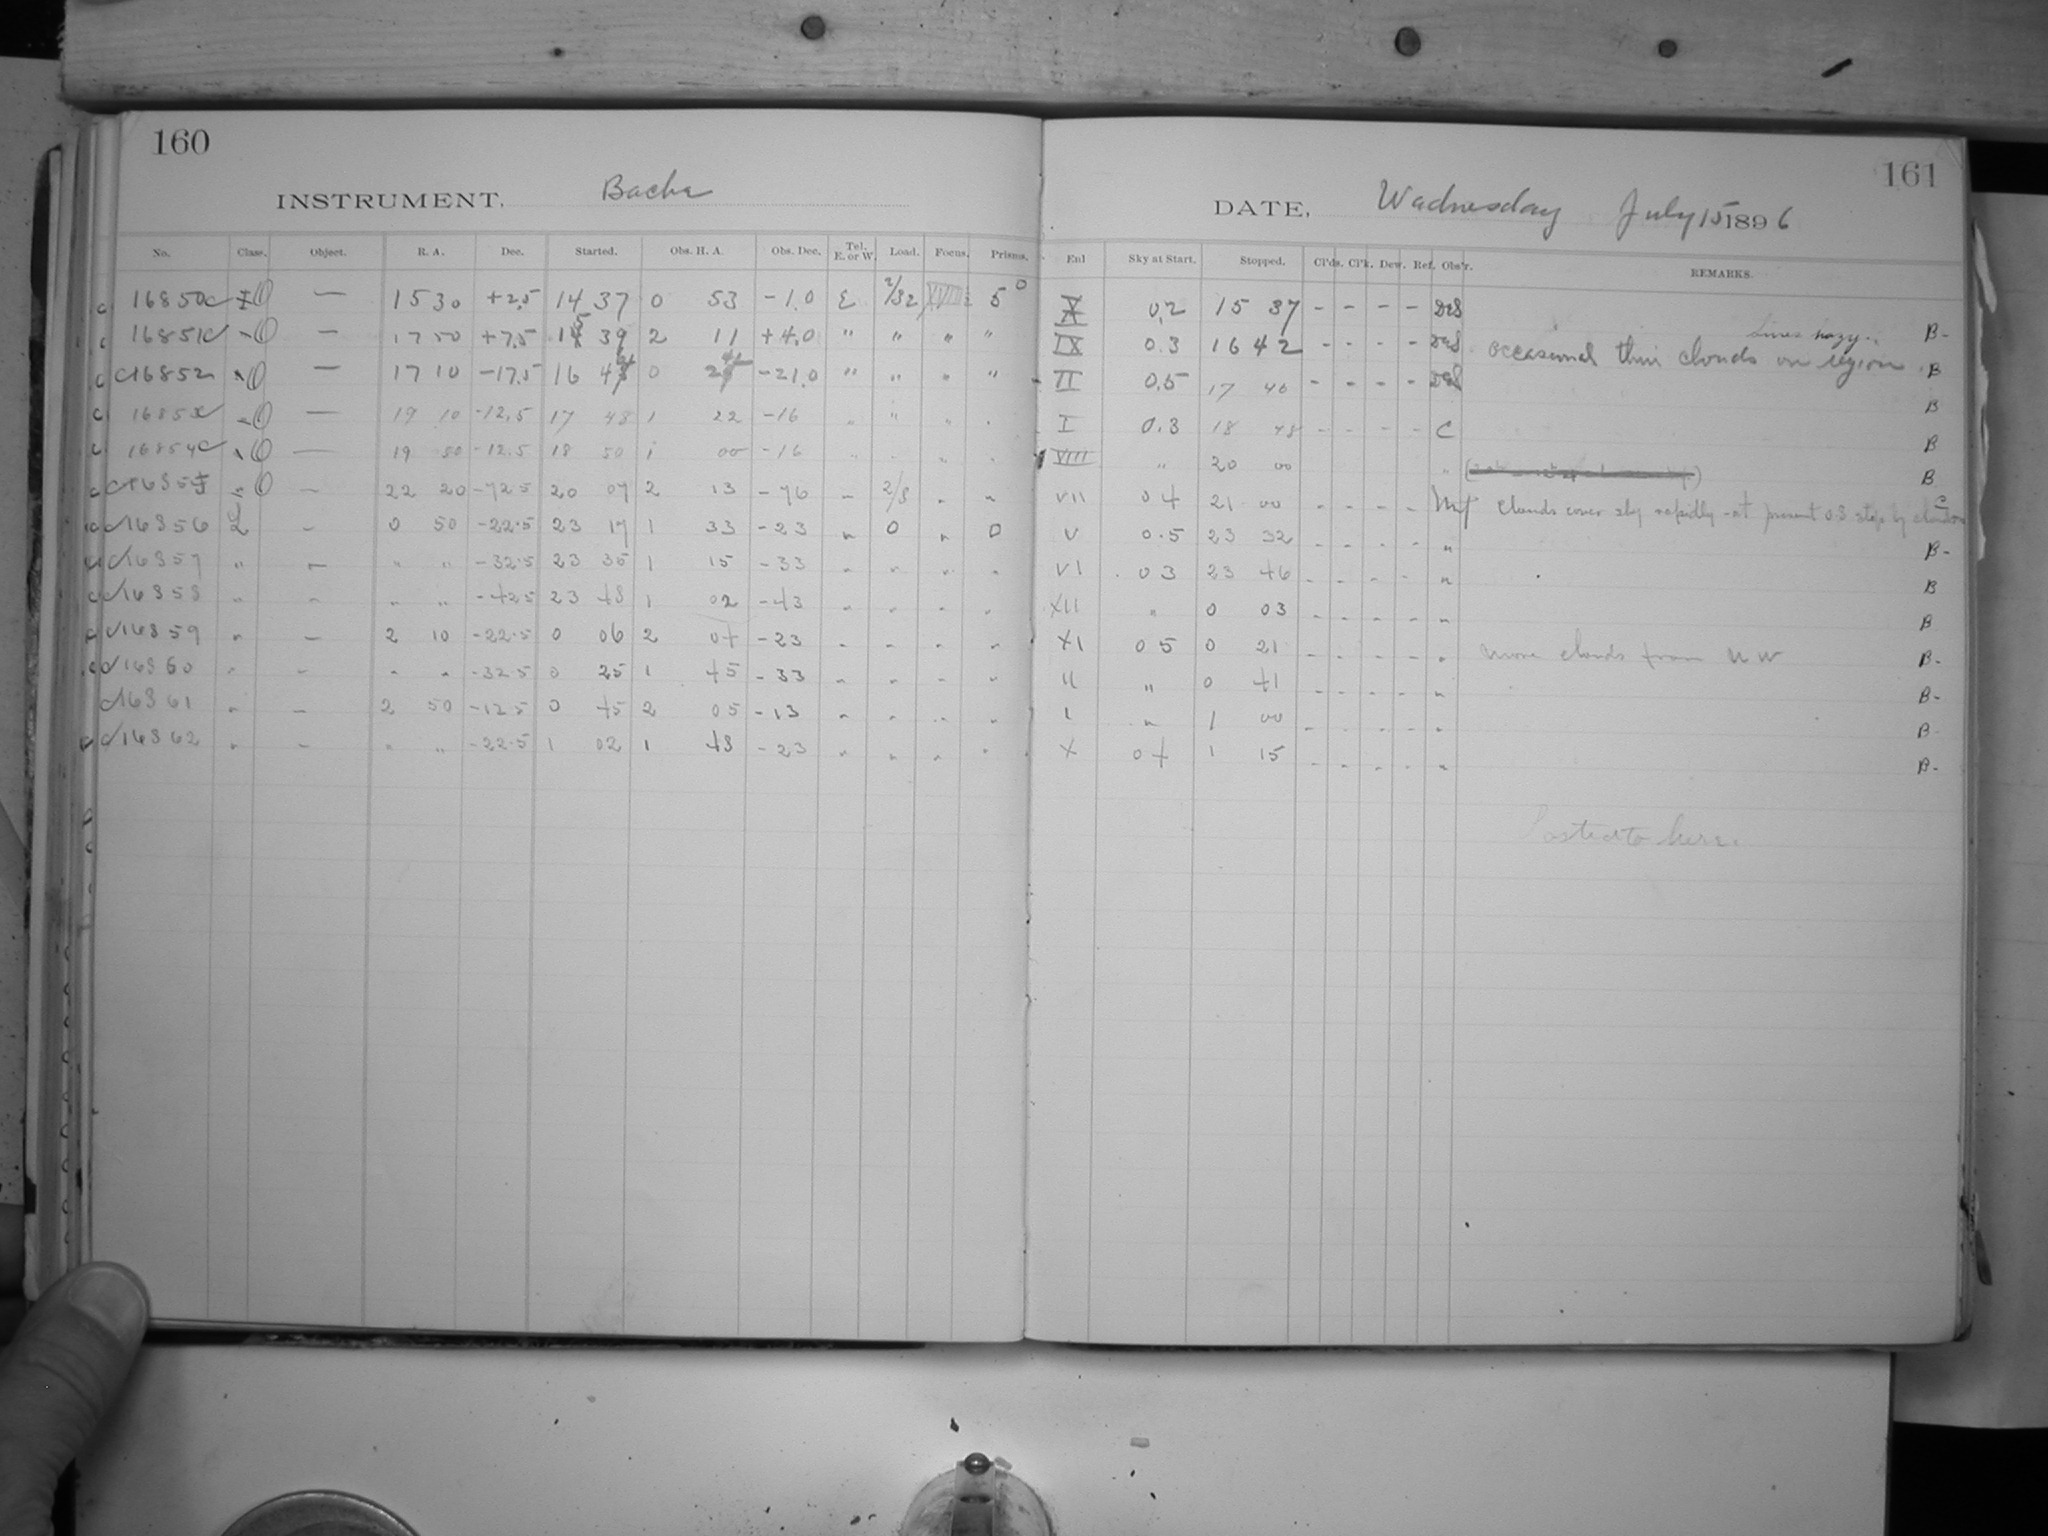 160
INSTRUMENT. Bache
No. Class. Object. R. A. Dec. Started. Obs. H. A. Obs. Dec. Tel. E. or W. Load. Focus. Prisms.
c 16850c I O — 15 30 +2.5 14 37 0 53 -1.0 E 2/32 XVIII 5 0
c 16851c " O — 17 50 +7.5 15 39 2 11 +4.0 " " " "
c c16852 " O — 17 10 -17.5 16 44 0 24 -21.0 " " " "
c 16853c " O — 19 10 -12.5 17 48 1 22 -16 " " " "
c 16854c " O — 19 50 -12.5 18 50 1 00 -16 " " " "
c c16855 " O — 22 20 -72.5 20 07 2 13 -76 " 2/8 " "
c c16856 L — 0 50 -22.5 23 17 1 33 -23 " 0 " 0
c c16857 " — " " -32.5 23 35 1 15 -33 " " " "
c c16858 " — " " -42.5 23 48 1 02 -43 " " " "
c c16859 " — 2 10 -22.5 0 06 2 04 -23 " " " "
c c16860 " — " " -32.5 0 25 1 45 -33 " " " "
c16861 " — 2 50 -12.5 0 45 2 05 -13 " " " "
c16862 " — " " -22.5 1 02 1 48 -23 " " " "
161
DATE, Wednesday July 15 1896
Enl Sky at Start. Stopped. Cl'ds. Cl'k. Dew. Ref. Obs'r. REMARKS.
X 0.2 15 37 - - - - DeS
Lines hazy. B-
IX 0.3 16 42 - - - - DeS occasional thin clouds on region. B
II 0.5 17 46 - - - - DeS
B
I 0.3 18 48 - - - - C B
VIII " 20 00 " B
VII 04 21 00 - - - - Mf Clouds cover sky rapidly - at present 0.3 stop by clouds C
V 0.5 23 32 - - - - " B-
VI 03 23 46 - - - - " B
XII " 0 03 - - - - " B
XI 05 0 21 - - - - " more clouds from NW B-
II " 0 41 - - - - " B-
I " 1 00 - - - - " B
X 04 1 15 - - - - " B-
Posted to here.